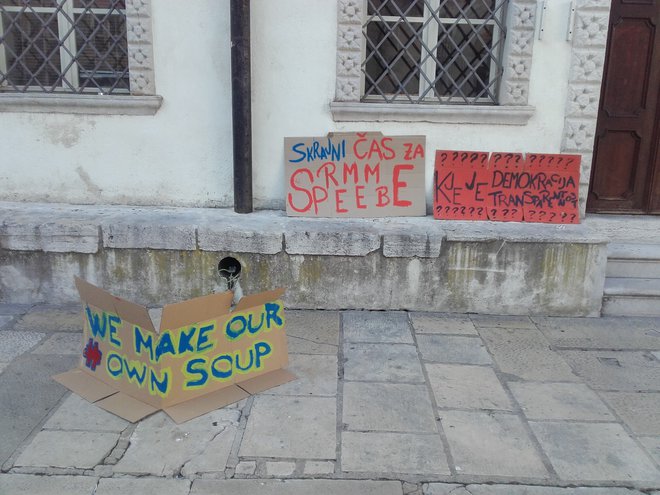 SKRAJNI ČAS ZA
SPREMEMBE
????? ??? ?????
KJE JE DEMOKRACIJA
WE MAKE OUR
# OWN SOUP